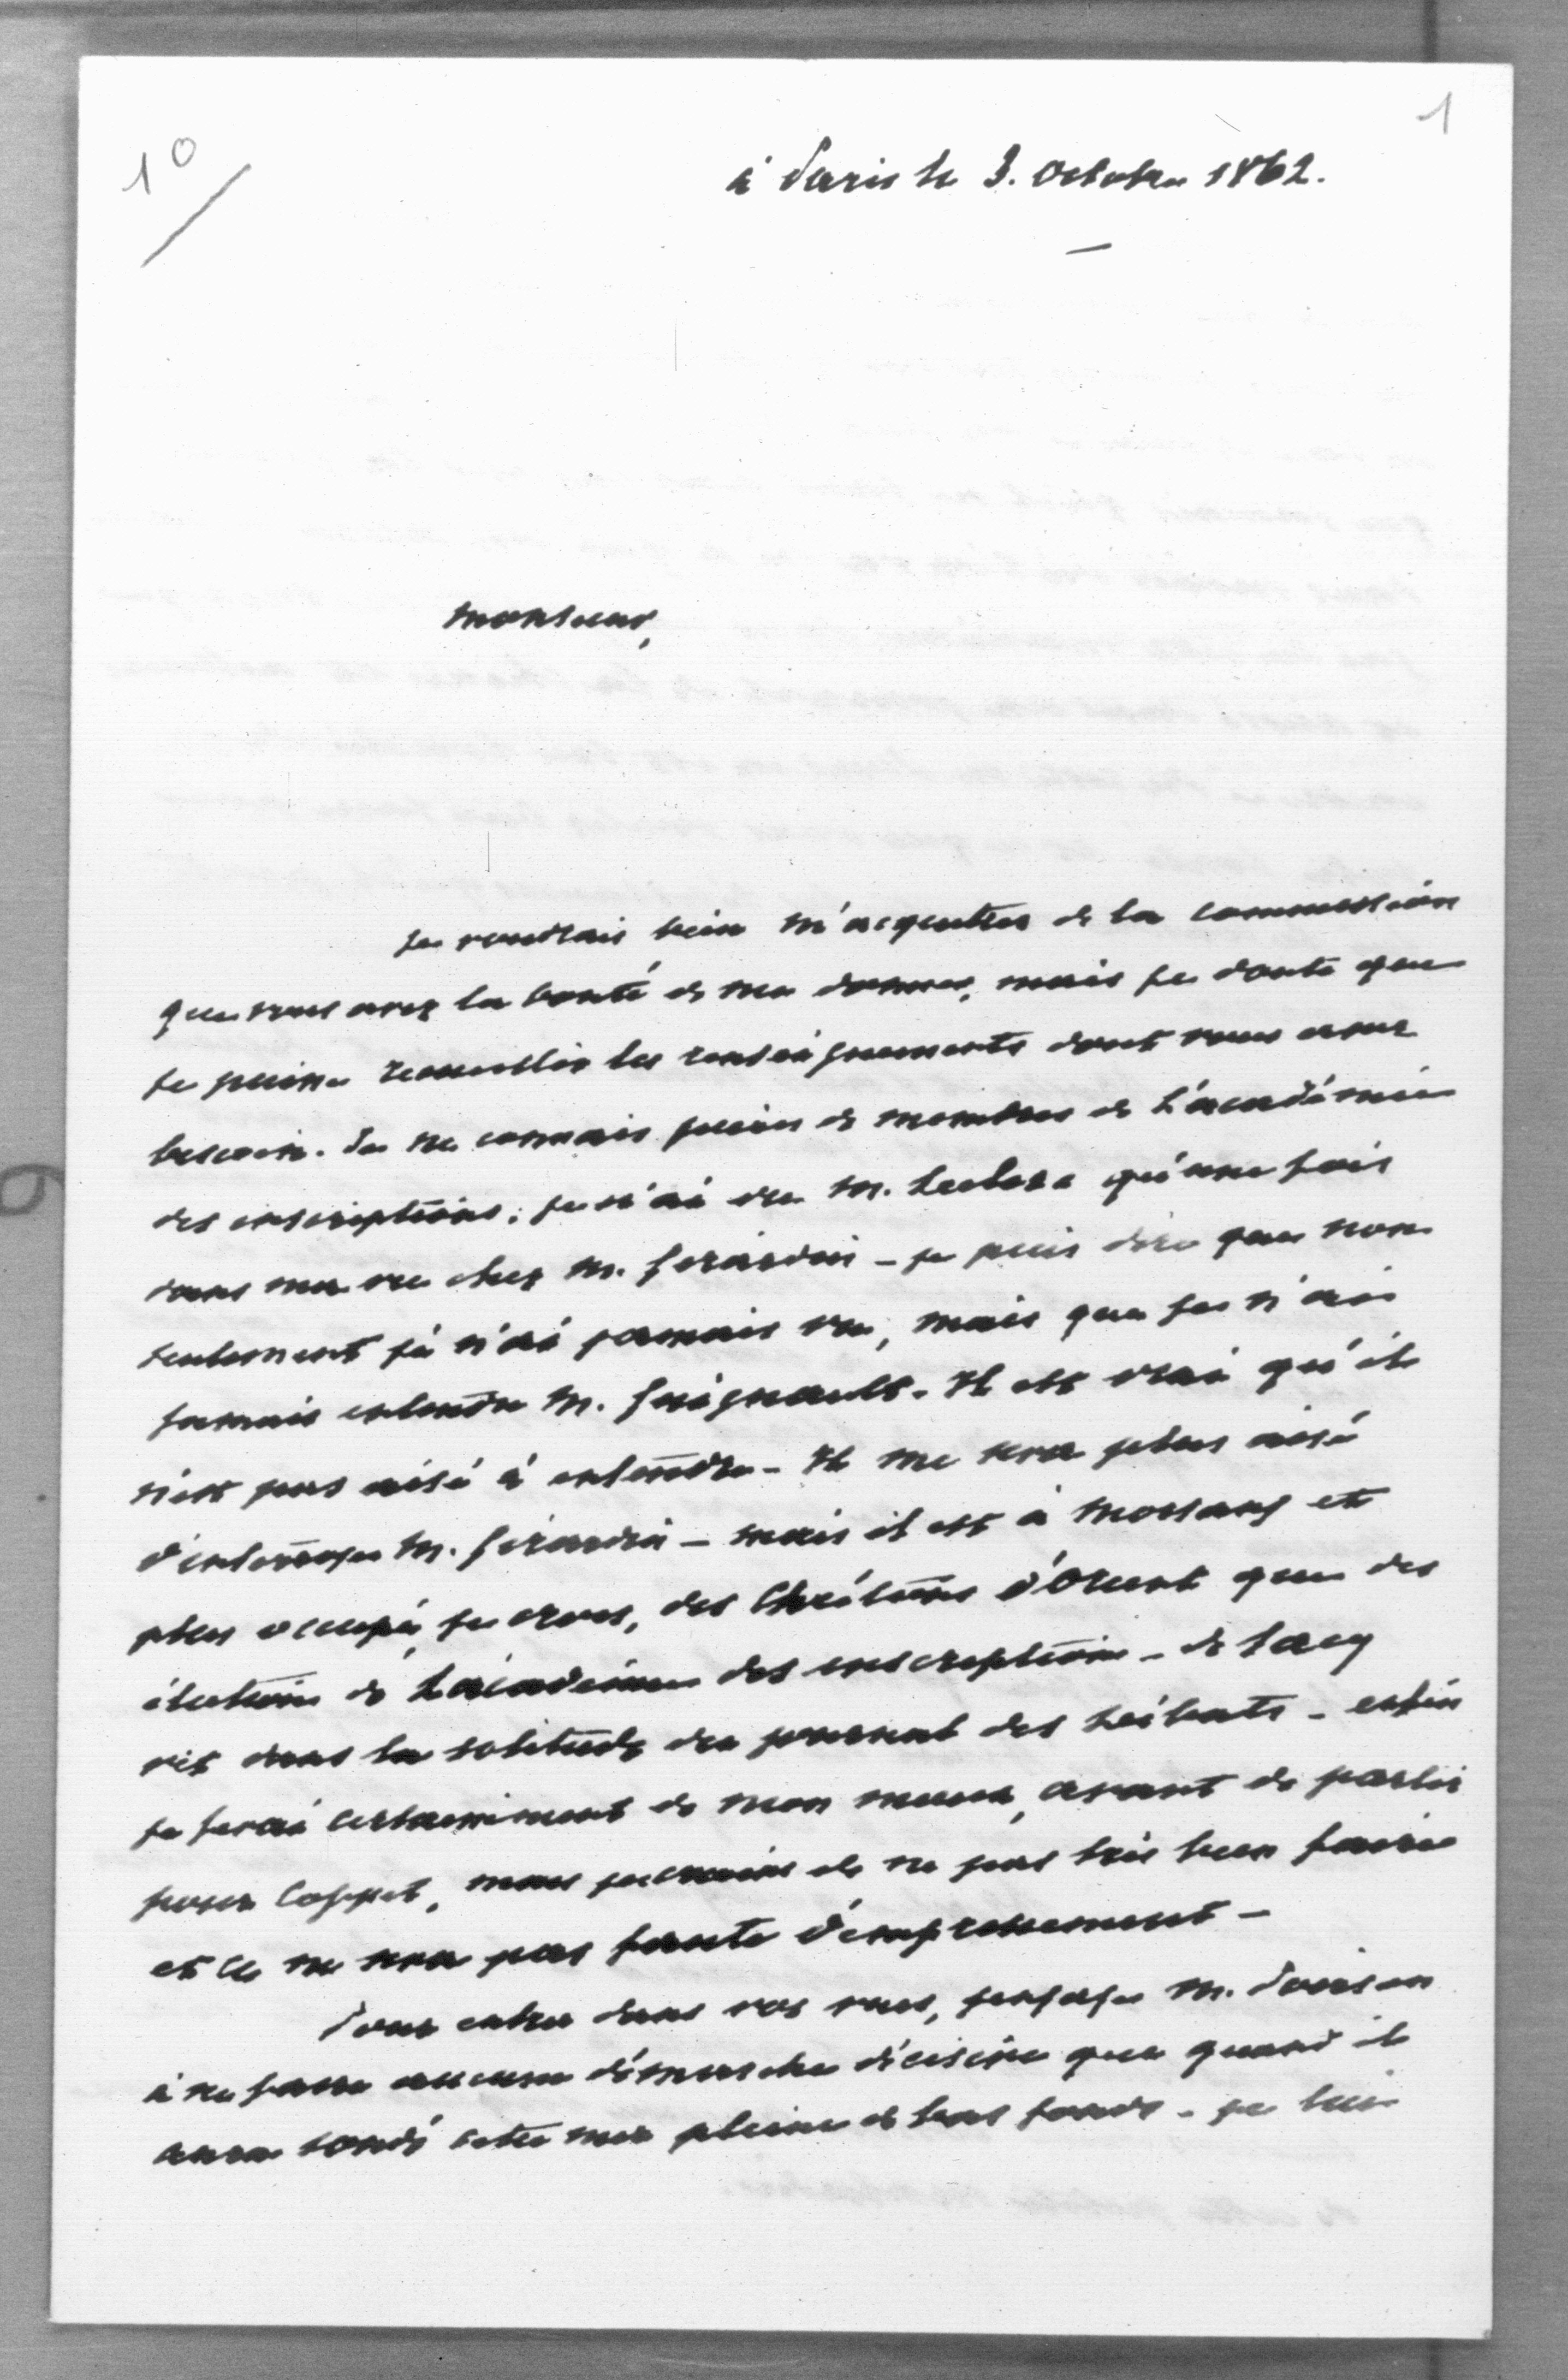 10
1
à Paris le 3. Octobre 1862.
Monsieur,
Je voudrais bien m'acquitter de la commission
que vous avez la bonté de me donner, mais je doute que
je puisse recueillir les renseignements dont vous avez
besoin. Je ne connais guère de membres de l'académie
des inscriptions; je n'ai vu M. Leclerc qu'une fois
dans ma vie chez M. Girardin - je puis dire que non
seulement je n'ai jamais vu, mais que je n'ai
jamais entendu M. Guignault. Il est vrai qu'il
n'est pas aisé à entendre - Il me sera plus aisé
d'interroger M. Girardin - mais il est à Morsang et
plus occupé, je crois, des Chrétiens d'Orient que des
élections de l'académie des inscriptions - de Sacy
vit dans la solitude du journal des Débats - enfin
je ferai certainement de mon mieux, avant de partir
pour Coppet, mais je crains de ne pas très bien faire
et ce ne sera pas faute d'empressement -
Pour entrer dans vos vues, j'engage M.
à ne faire aucune démarche décisive que quand il
aura sondé cette mer pleine de bas fonds - je lui